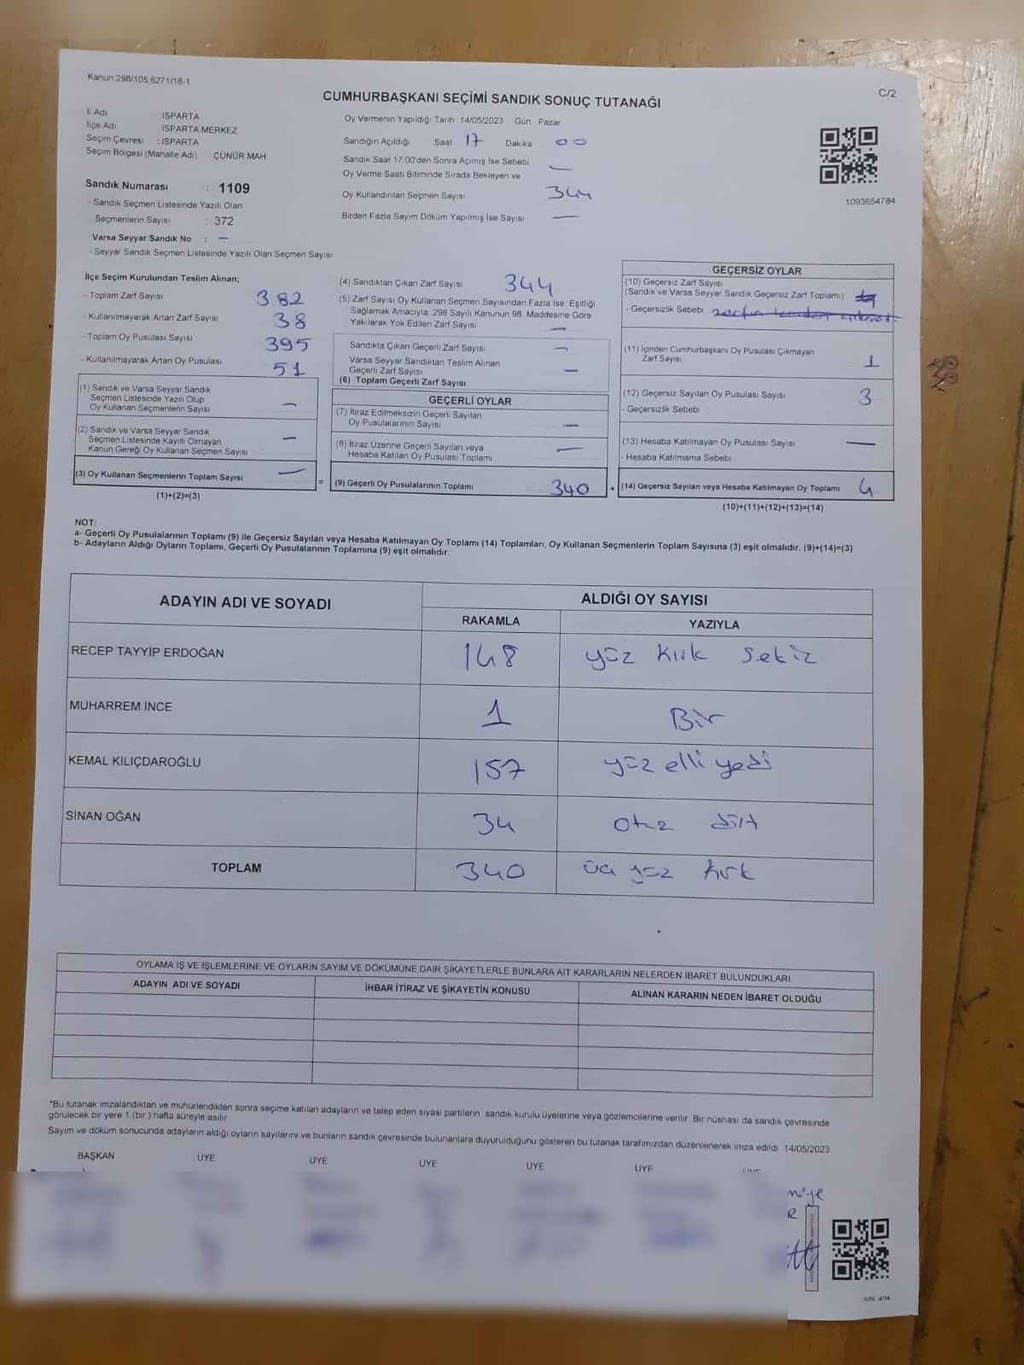 Kanun:298/105,6271/18-1
C/2
CUMHURBAŞKANI SEÇİMİ SANDIK SONUÇ TUTANAĞI
İl Adı : ISPARTA
İlçe Adı : ISPARTA MERKEZ
Seçim Çevresi : ISPARTA
Seçim Bölgesi (Mahalle Adı) ÇÜNÜR MAH
Sandık Numarası : 1109
- Sandık Seçmen Listesinde Yazılı Olan
Seçmenlerin Sayısı : 372
Varsa Seyyar Sandık No : -
- Seyyar Sandık Seçmen Listesinde Yazılı Olan Seçmen Sayısı
Oy Vermenin Yapıldığı Tarih: 14/05/2023 Gün Pazar
Sandığın Açıldığı Saat 17 Dakika 00
Sandık Saat 17:00'den Sonra Açılmış İse Sebebi -
Oy Verme Saati Bitiminde Sırada Bekleyen ve
Oy Kullandırılan Seçmen Sayısı 344
Birden Fazla Sayım Döküm Yapılmış İse Sayısı -
1093654784
İlçe Seçim Kurulundan Teslim Alınan;
- Toplam Zarf Sayısı 382
- Kullanılmayarak Artan Zarf Sayısı 38
- Toplam Oy Pusulası Sayısı 395
- Kullanılmayarak Artan Oy Pusulası 51
(1) Sandık ve Varsa Seyyar Sandık
Seçmen Listesinde Yazılı Olup
Oy Kullanan Seçmenlerin Sayısı -
(2) Sandık ve Varsa Seyyar Sandık
Seçmen Listesinde Kayıtlı Olmayan
Kanun Gereği Oy Kullanan Seçmen Sayısı -
(3) Oy Kullanan Seçmenlerin Toplam Sayısı -
(1)+(2)=(3)
=
(4) Sandıktan Çıkan Zarf Sayısı 344
(5) Zarf Sayısı Oy Kullanan Seçmen Sayısından Fazla İse, Eşitliği
Sağlamak Amacıyla; 298 Sayılı Kanunun 98. Maddesine Göre
Yakılarak Yok Edilen Zarf Sayısı -
Sandıkta Çıkan Geçerli Zarf Sayısı -
Varsa Seyyar Sandıktan Teslim Alınan
Geçerli Zarf Sayısı -
(6) Toplam Geçerli Zarf Sayısı
GEÇERLİ OYLAR
(7) İtiraz Edilmeksizin Geçerli Sayılan
Oy Pusulalarının Sayısı -
(8) İtiraz Üzerine Geçerli Sayılan veya
Hesaba Katılan Oy Pusulası Toplamı -
(9) Geçerli Oy Pusulalarının Toplamı 340
+
GEÇERSİZ OYLAR
(10) Geçersiz Zarf Sayısı
(Sandık ve Varsa Seyyar Sandık Geçersiz Zarf Toplamı)
- Geçersizlik Sebebi
(11) İçinden Cumhurbaşkanı Oy Pusulası Çıkmayan
Zarf Sayısı 1
(12) Geçersiz Sayılan Oy Pusulası Sayısı 3
- Geçersizlik Sebebi
(13) Hesaba Katılmayan Oy Pusulası Sayısı -
- Hesaba Katılmama Sebebi
(14) Geçersiz Sayılan veya Hesaba Katılmayan Oy Toplamı 4
(10)+(11)+(12)+(13)=(14)
NOT:
a- Geçerli Oy Pusulalarının Toplamı (9) ile Geçersiz Sayılan veya Hesaba Katılmayan Oy Toplamı (14) Toplamları, Oy Kullanan Seçmenlerin Toplam Sayısına (3) eşit olmalıdır. (9)+(14)=(3)
b- Adayların Aldığı Oyların Toplamı, Geçerli Oy Pusulalarının Toplamına (9) eşit olmalıdır.
ADAYIN ADI VE SOYADI ALDIĞI OY SAYISI
RAKAMLA YAZIYLA
RECEP TAYYİP ERDOĞAN 148 yüz kırk sekiz
MUHARREM İNCE 1 Bir
KEMAL KILIÇDAROĞLU 157 yüz elli yedi
SİNAN OĞAN 34 otuz dört
TOPLAM 340 üç yüz kırk
OYLAMA İŞ VE İŞLEMLERİNE VE OYLARIN SAYIM VE DÖKÜMÜNE DAİR ŞİKAYETLERLE BUNLARA AİT KARARLARIN NELERDEN İBARET BULUNDUKLARI
ADAYIN ADI VE SOYADI İHBAR İTİRAZ VE ŞİKAYETİN KONUSU ALINAN KARARIN NEDEN İBARET OLDUĞU
*Bu tutanak imzalandıktan ve mühürlendikten sonra seçime katılan adayların ve talep eden siyasi partilerin sandık kurulu üyelerine veya gözlemcilerine verilir. Bir nüshası da sandık çevresinde
görülecek bir yere 1 (bir) hafta süreyle asılır.
Sayım ve döküm sonucunda adayların aldığı oyların sayılarını ve bunların sandık çevresinde bulunanlara duyurulduğunu gösteren bu tutanak tarafımızdan düzenlenerek imza edildi. 14/05/2023
BAŞKAN ÜYE ÜYE ÜYE ÜYE ÜYE